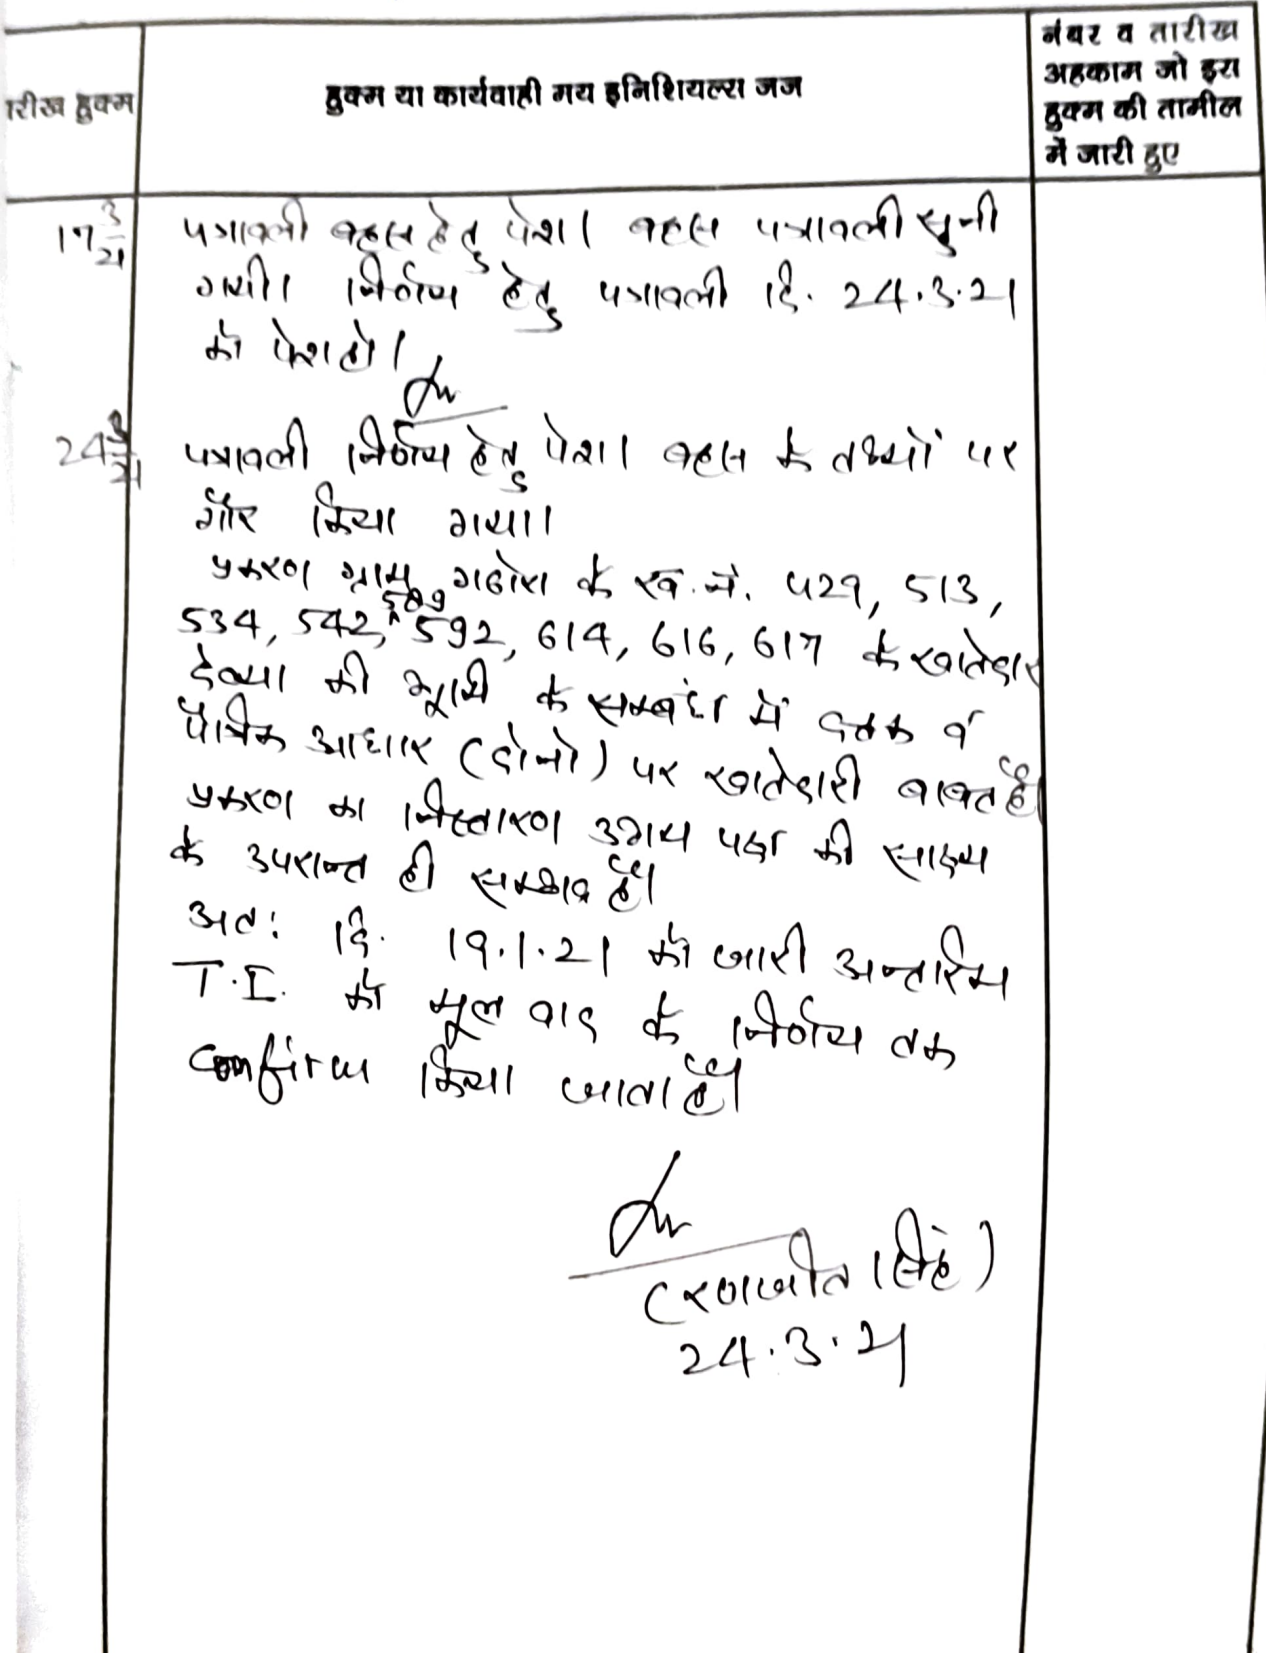 तारीख हुक्म
हुक्म या कार्यवाही मय इनिशियल्स जज
नंबर व तारीख
अहकाम जो इस
हुक्म की तामील
में जारी हुए
17 3/21
पत्रावली बहस हेतु पेश। बहस पत्रावली सुनी
गयी। निर्णय हेतु पत्रावली दि. 24.3.21
को पेश हो।
24 3/21
पत्रावली निर्णय हेतु पेश। बहस के तथ्यों पर
गौर किया गया।
प्रकरण ग्राम के ख.नं. 429, 513,
534, 542, 589 592, 614, 616, 617 के खातेदार
देव्या की भूमि के सम्बंध में दत्तक व
पैत्रिक आधार (दोनो) पर खातेदारी बाबत है।
प्रकरण का निस्तारण उभय पक्ष की साक्ष्य
के उपरान्त ही सम्भव है।
अतः दि. 19.1.21 को जारी अन्तरिम
T.I. को मूल वाद के निर्णय तक
Confirm किया जाता है।
(रणजीत सिंह)
24.3.21